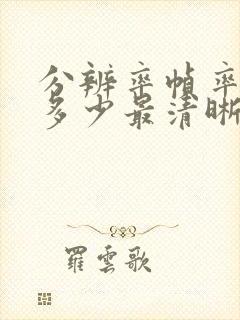 分辨率帧率
多少最清晰
羅雲歌